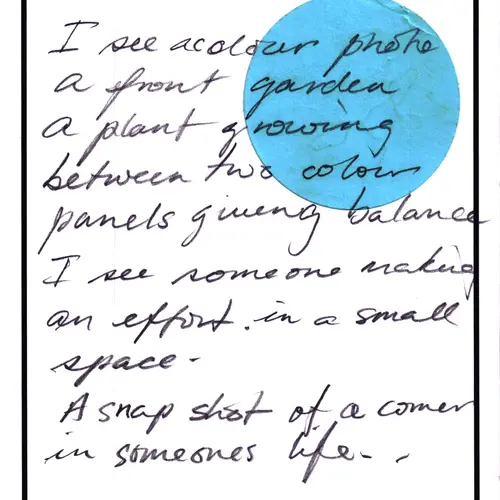 I see a colour photo
a front garden
A plant growing
between two colour
panels giving balance
I see someone making
an effort. in a small
space -
A snap shot of a corner
in someones life - .